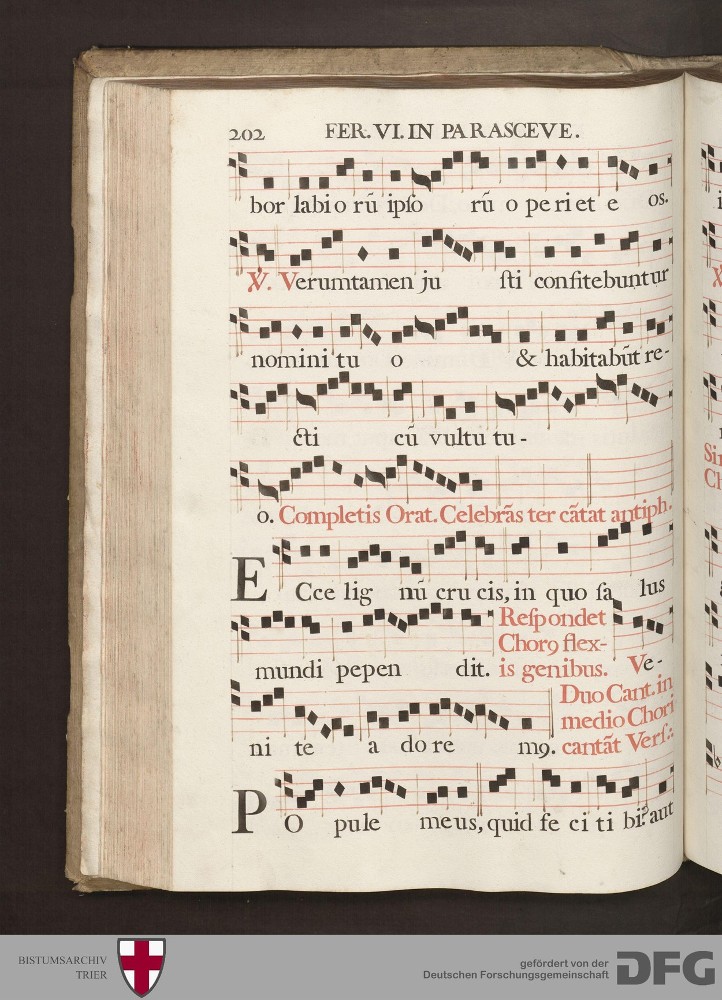 202 FER. VI. IN PARASCEVE.
bor labio rũ ipſo rũ o pe ri et e os.
℣. Verumtamen ju ſti confitebuntur
nomini tu o & habitabũt re-
cti cũ vultu tu-
o. Completis Orat. Celebrãs ter cãtat antiph.
ECce lig nũ cru cis, in quo ſa lus
mundi pepen dit. Reſpondet
Chorꝯ flex-
is genibus. Ve-
ni te a do re mꝯ. Duo Cant. in
medio Chori
cantãt Verſ.
POpule meus, quid fe ci ti bi? aut
BISTUMSARCHIV
TRIER
gefördert von der
Deutschen Forschungsgemeinschaft
DFG